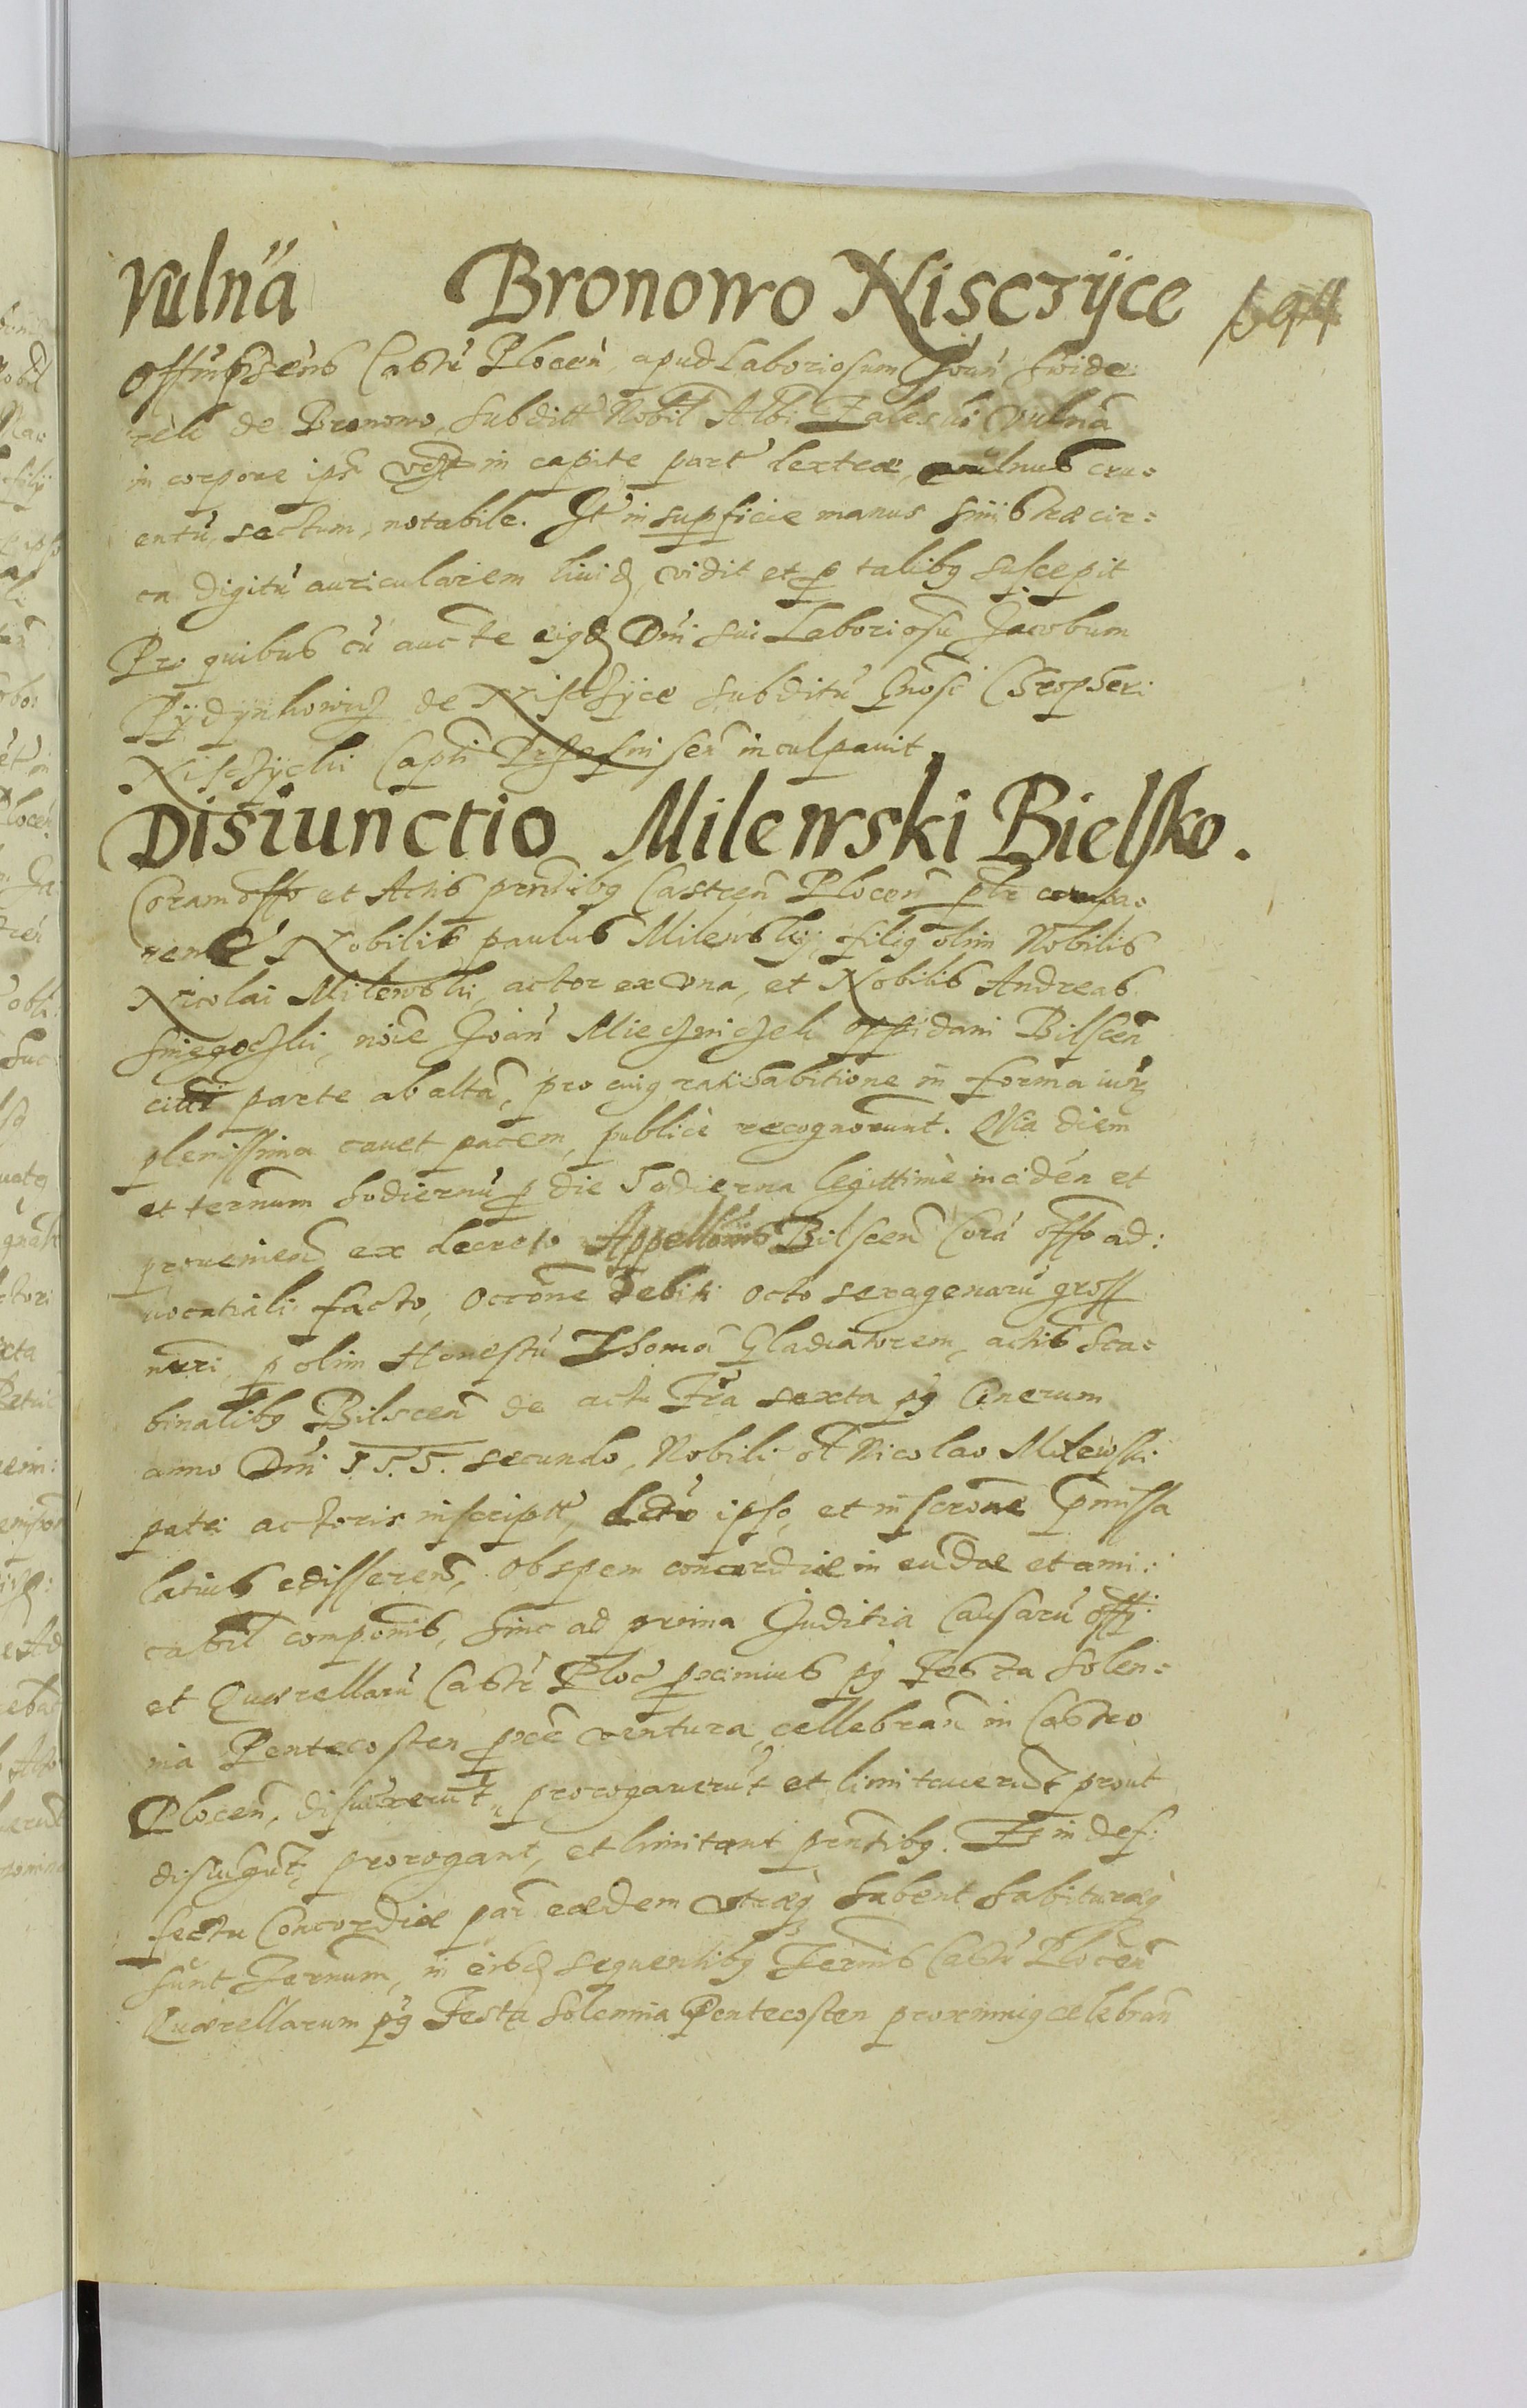 Vulnã Bronowo Nisczÿce
Offiũ psens Castr̃ Plocen̄, apud Laboriosum Joan̄ Swider
rek de Bronowo, subditt Nobil Albi Zaleski Vulnã
in corpore ips̃ vz̃ in capite part dextræ, vulnus cru=
entũ sectum, notabile. It in supficie manus sinistræ cir=
ca digitũ auricularem livid, vidit et p talibq suscepit
Pro quibus cũ aucte eigd Dñi sui Laboriosũ Jacobum
de Nisczÿce subditũ Gnosi
Nisczÿcki Captĩ Prz inculpauit
Disiunctio Milewski Bielsko.
Coram offo et Actis pñtibq Castren̄ Plocen̄ plr compa=
ren̄ Nobilis paulus Milewskij filiq olim Nobilis
Nicolai Milewski, actor ex vna, et Nobilis Andreas
noĩe Joan̄ oppidani Bilscen̄
citti parte ab altã, pro cuiq ratihabitione in forma iur̃
plenissima cauet pacem, publicè recognouunt. Qvia diem
et ternum hodiernũ p die hodierna legittimè inciden̄ et
prouenien̄ ex decreto Appellonis Bilscen̄ Corã offo ad:
uocatiali facto, Occone debiti octo sexagenarũ gross
nũri, p olim Honestũ Thomã Gladiatorem, actis sca=
binalibq Bilscen̄ de actu Fr̃a sexta pq Cinerum
anno Dñi 155. secundo, Nobili ol Nicolao Milewski
patri actoris inscriptt, ipso, et inscrone pmissa
latius edisseren̄, Ob spem concordiæ in eũdæ et ami:
cabil componis, hinc ad prima Juditia Causarũ offi:
et Quærellarũ Castr̃ Ploc̃ pximius pq Festa solen=
nia Pentecosten pxe ventura, cellebran̄ in Castro
Plocen̄, disiũxerũt, prorogauerũt et limitauerũt prout
disiũgũt, prorogant, et limitant pñtibq. Et in def:
fectu Concordiæ par̃ eædem vtræq habent habituræq
sunt Ternum, in eisd sequentibq Termis Castr̃ Plocen̄
Quærellarum pq Festa solennia Pentecosten proximiq celebran̄